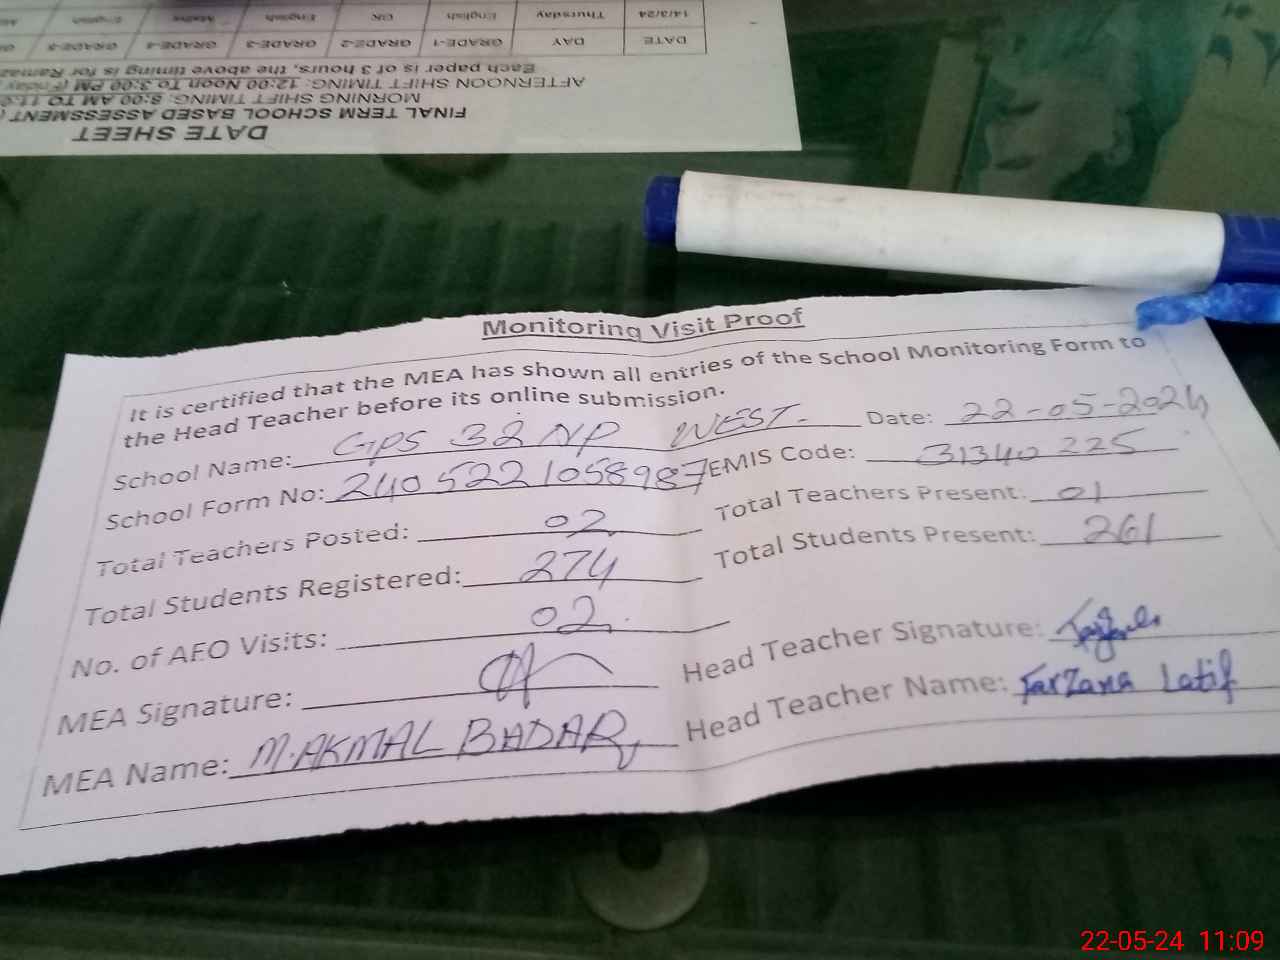 DATE SHEET
FINAL TERM SCHOOL BASED ASSESSMENT
MORNING SHIFT TIMING: 8:00 AM TO
AFTERNOON SHIFT TIMING: 12:00 Noon To 3:00 PM
Each paper is of 3 hours, the above timing is for
DATE DAY GRADE-1 GRADE-2 GRADE-3 GRADE-4 GRADE-5
14/3/24 Thursday English English Maths English
Monitoring Visit Proof
It is certified that the MEA has shown all entries of the School Monitoring Form to
the Head Teacher before its online submission.
School Name: GPS 32 NP WEST. Date: 22-05-2024
School Form No: 2405221058987 EMIS Code: 31340225
Total Teachers Posted: 02 Total Teachers Present: 01
Total Students Registered: 274 Total Students Present: 261
No. of AEO Visits: 02.
MEA Signature: Head Teacher Signature:
MEA Name: M. AKMAL BADAR Head Teacher Name: Farzana Latif
22-05-24 11:09